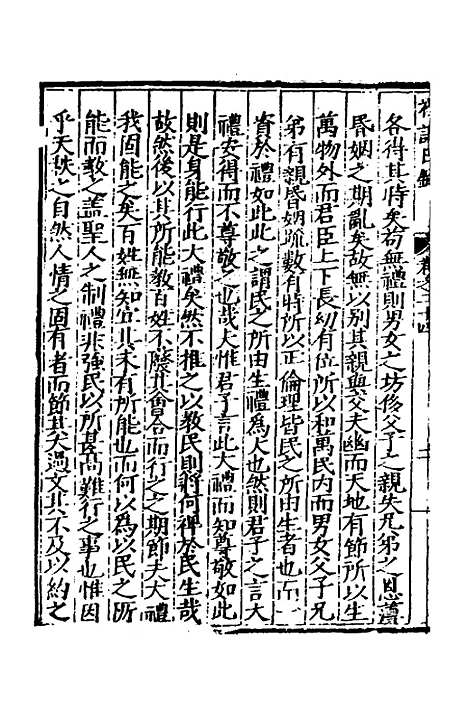 禮記日錄
卷之二十四
各得其時矣苟無禮則男女之坊侈父子之親失兄弟之恩薄
昏姻之期亂矣故無以别其親與父夫幽而天地有節所以生
萬物外而君臣上下長幼有位所以和萬民内而男女父子兄
弟有親昏姻疏數有時所以正倫理皆民之所由生者也而
資於禮如此此之謂民之所由生禮為大也然則君子之言大
禮安得而不尊敬之也哉夫惟君子言此大禮而知尊敬如此
則是身能行此大禮矣然不推之以敎民則將何裨於民生哉
故然後以其所能敎百姓不廢其㑹合而行之之期節夫大禮
我固能之矣百姓無知宜其未有所能也而何以為以民之所
能而敎之盖聖人之制禮非強民以所甚高難行之事也惟因
乎天秩之自然人情之固有者而節其太過文其不及以約之